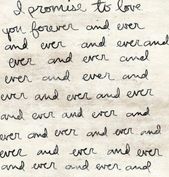 I promise to love
you forever and ever
and ever and ever and
ever and ever and ever
ever and ever and
ever and ever and ever
and ever and ever and
ever and ever and ever and
ever and ever and ever
and ever and ever and